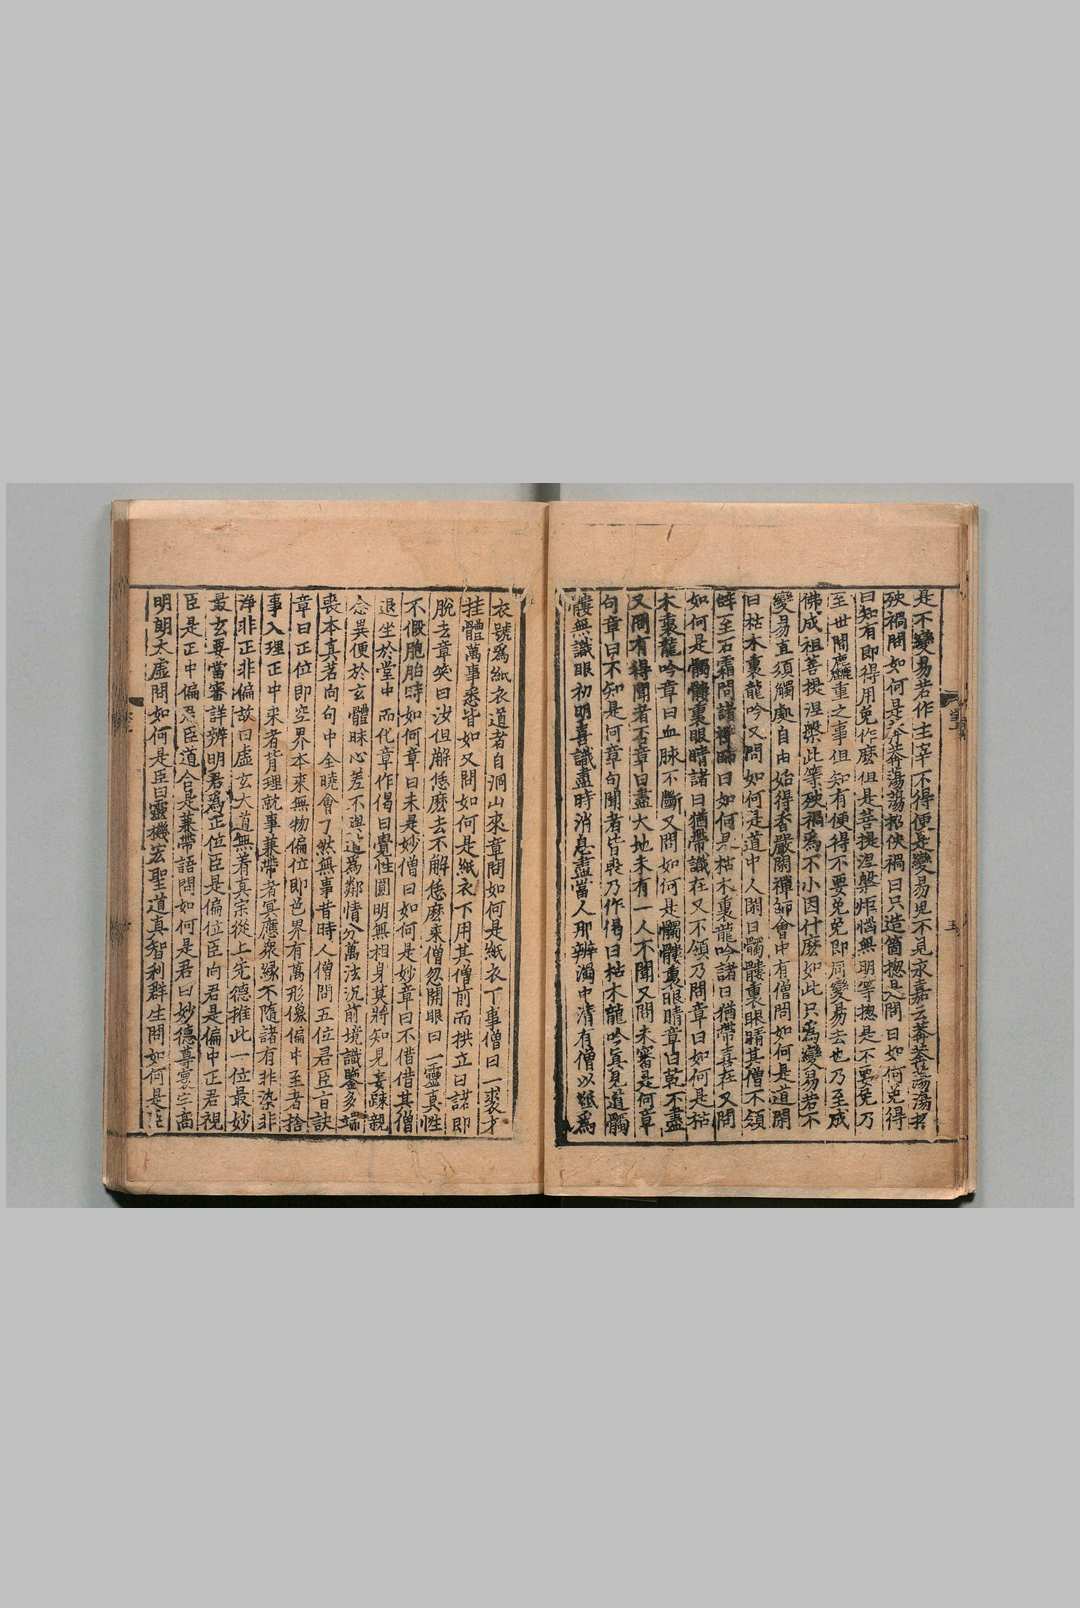 是不變易若作主宰不得便是變易也不見永嘉云莽莽蕩蕩招
殃禍問如何是莽莽蕩蕩招殃禍曰只這箇摠是問曰如何免得
曰知有即得用免作麼但是菩提涅槃煩惱無明等摠是不要免乃
至世間麁重之事但知有便得不要免免即同變易去也乃至成
佛成祖菩提涅槃此等殃禍爲不小因什麽如此只爲變易若不
變易直須觸處自由始得香嚴閑禪師會中有僧問如何是道閑
曰枯木裏龍吟又問如何是道中人閑曰髑髏裏眼睛其僧不領
辝至石霜問諸禪師曰如何是枯木裏龍吟諸曰猶帶喜在又問
如何是髑髏裏眼睛諸曰猶帶識在又不領乃問章曰如何是枯
木裏龍吟章曰血脉不斷又問如何是髑髏裏眼睛章曰乾不盡
又問有得聞者否章曰盡大地未有一人不聞又問未審是何章
句章曰不知是何章句聞者皆喪乃作偈曰枯木龍吟眞見道髑
髏無識眼初明喜識盡時消息盡當人那辨濁中淸有僧以紙爲
衣號爲紙衣道者自洞山來章問如何是紙衣下事僧曰一裘才
挂體萬事悉皆如又問如何是紙衣下用其僧前而拱立曰諾即
脫去章笑曰汝但解恁麽去不解恁麽來僧忽開眼曰一靈真性
不假胞胎時如何章曰未是妙僧曰如何是妙章曰不借借其僧
退坐於堂中而化章作偈曰覺性圓明無相身莫將知見妄疎親
念異便於玄體昧心差不與道爲鄰情分萬法沉前境識鑒多端
喪本真若向句中全曉會了然無事昔時人僧問五位君臣旨訣
章曰正位即空界本來無物偏位即色界有萬形像偏中至者捨
事入理正中來者背理就事兼帶者冥應衆緣不隨諸有非染非
淨非正非偏故曰虛玄大道無着真宗從上先德推此一位最妙
最玄要當審詳辨明君爲正位臣是偏位臣向君是偏中正君視
臣是正中偏君臣道合是兼帶語問如何是君曰妙德尊寰宇高
明朗太虛問如何是臣曰靈機宏聖道真智利群生問如何是臣